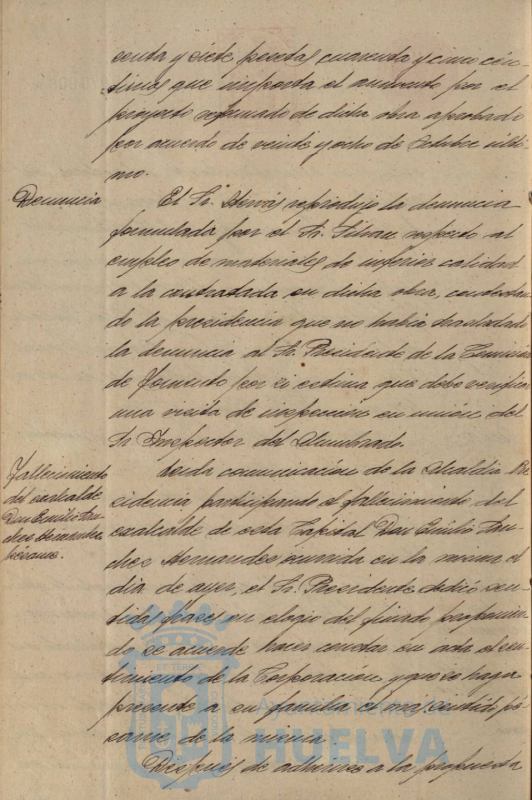 senta y siete pesetas cuarenta y cinco cén-
timos que importa el aumento por el
proyecto reformado de dicha obra aprobado
por acuerdo de veinte y ocho de Octubre últi-
mo.
Denuncia
El Sr. Hervás reprodujo la denuncia
formulada por el Sr. respecto al
empleo de materiales de inferior calidad
a la contratada en dicha obra, contestan-
do la presidencia que no había trasladado
la denuncia al Sr. Presidente de la Comisión
de Fomento por si estima que debe verificar
una visita de inspección en unión del
Sr. Inspector del Alumbrado.
Fallecimiento
del exalcalde
Don Emilio Sán-
chez Hernández
pésame.
Leída comunicación de la Alcaldía Pre
sidencia participando el fallecimiento del
exalcalde de esta Capital Don Emilio Sán-
chez Hernández ocurrida en la misma el
día de ayer, el Sr. Presidente dedicó sen-
tidas frases en elogio del finado, proponien-
do se acuerde hacer constar en acta el sen-
timiento de la Corporación y que se haga
presente a su familia el más sentido pé-
same de la misma.
Después de adherirse a la propuesta
Ayuntamiento de
HUELVA